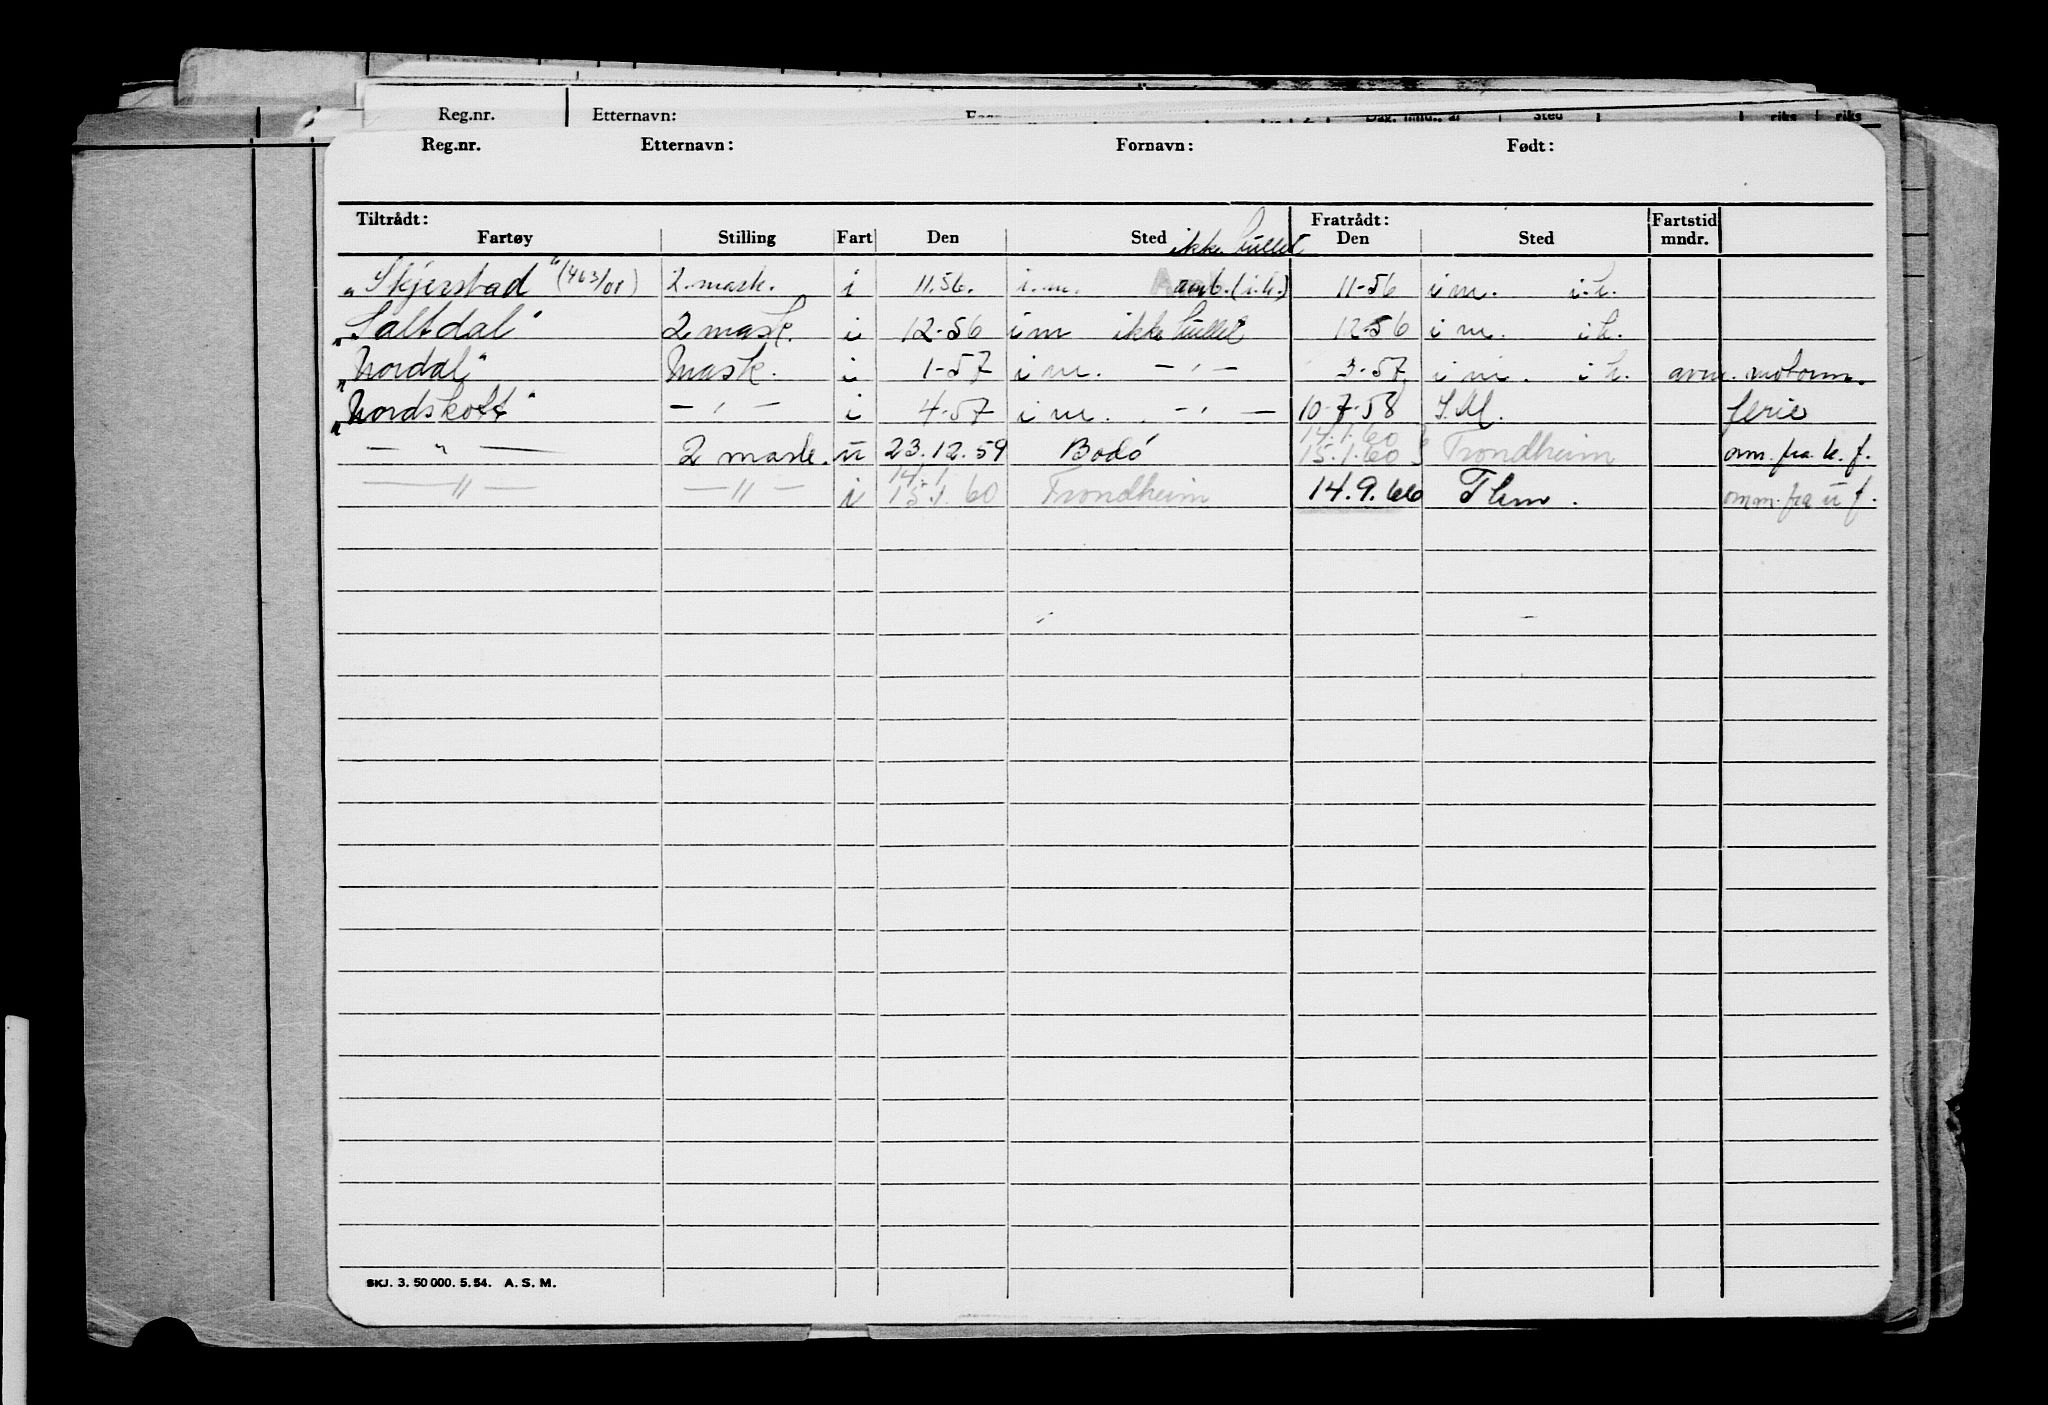 Reg.nr. Etternavn: Sted riks riks
Reg.nr. Etternavn: Fornavn: Født:
Tiltrådt: Fratrådt: Fartstid
Fartøy Stilling Fart Den Sted Den Sted mndr.
ikke
"Skjerstad" (463/01) 2. mask. i 11.56. i.m. (i.h.) 11-56 i m. i.h.
"Saltdal" 2 mask. i 12-56 i m ikke 12-56 i m. i h.
"Nordal" Mask. i 1-57 i m. — " — 3-57 i m. i h. motorm.
"Nordskott" — " — i 4-57 i m. — " — 10-7-58 I.M. ferie
14.1.60
— " — 2 mask. ü 23.12.59 Bodö 15.1.60 Trondheim om. fra k. f.
14.1
— " — — " — i 15.1.60 Trondheim 14.9.66 Thm. omm. fra ü f.
SKJ. 3. 50 000. 5. 54. A. S. M.